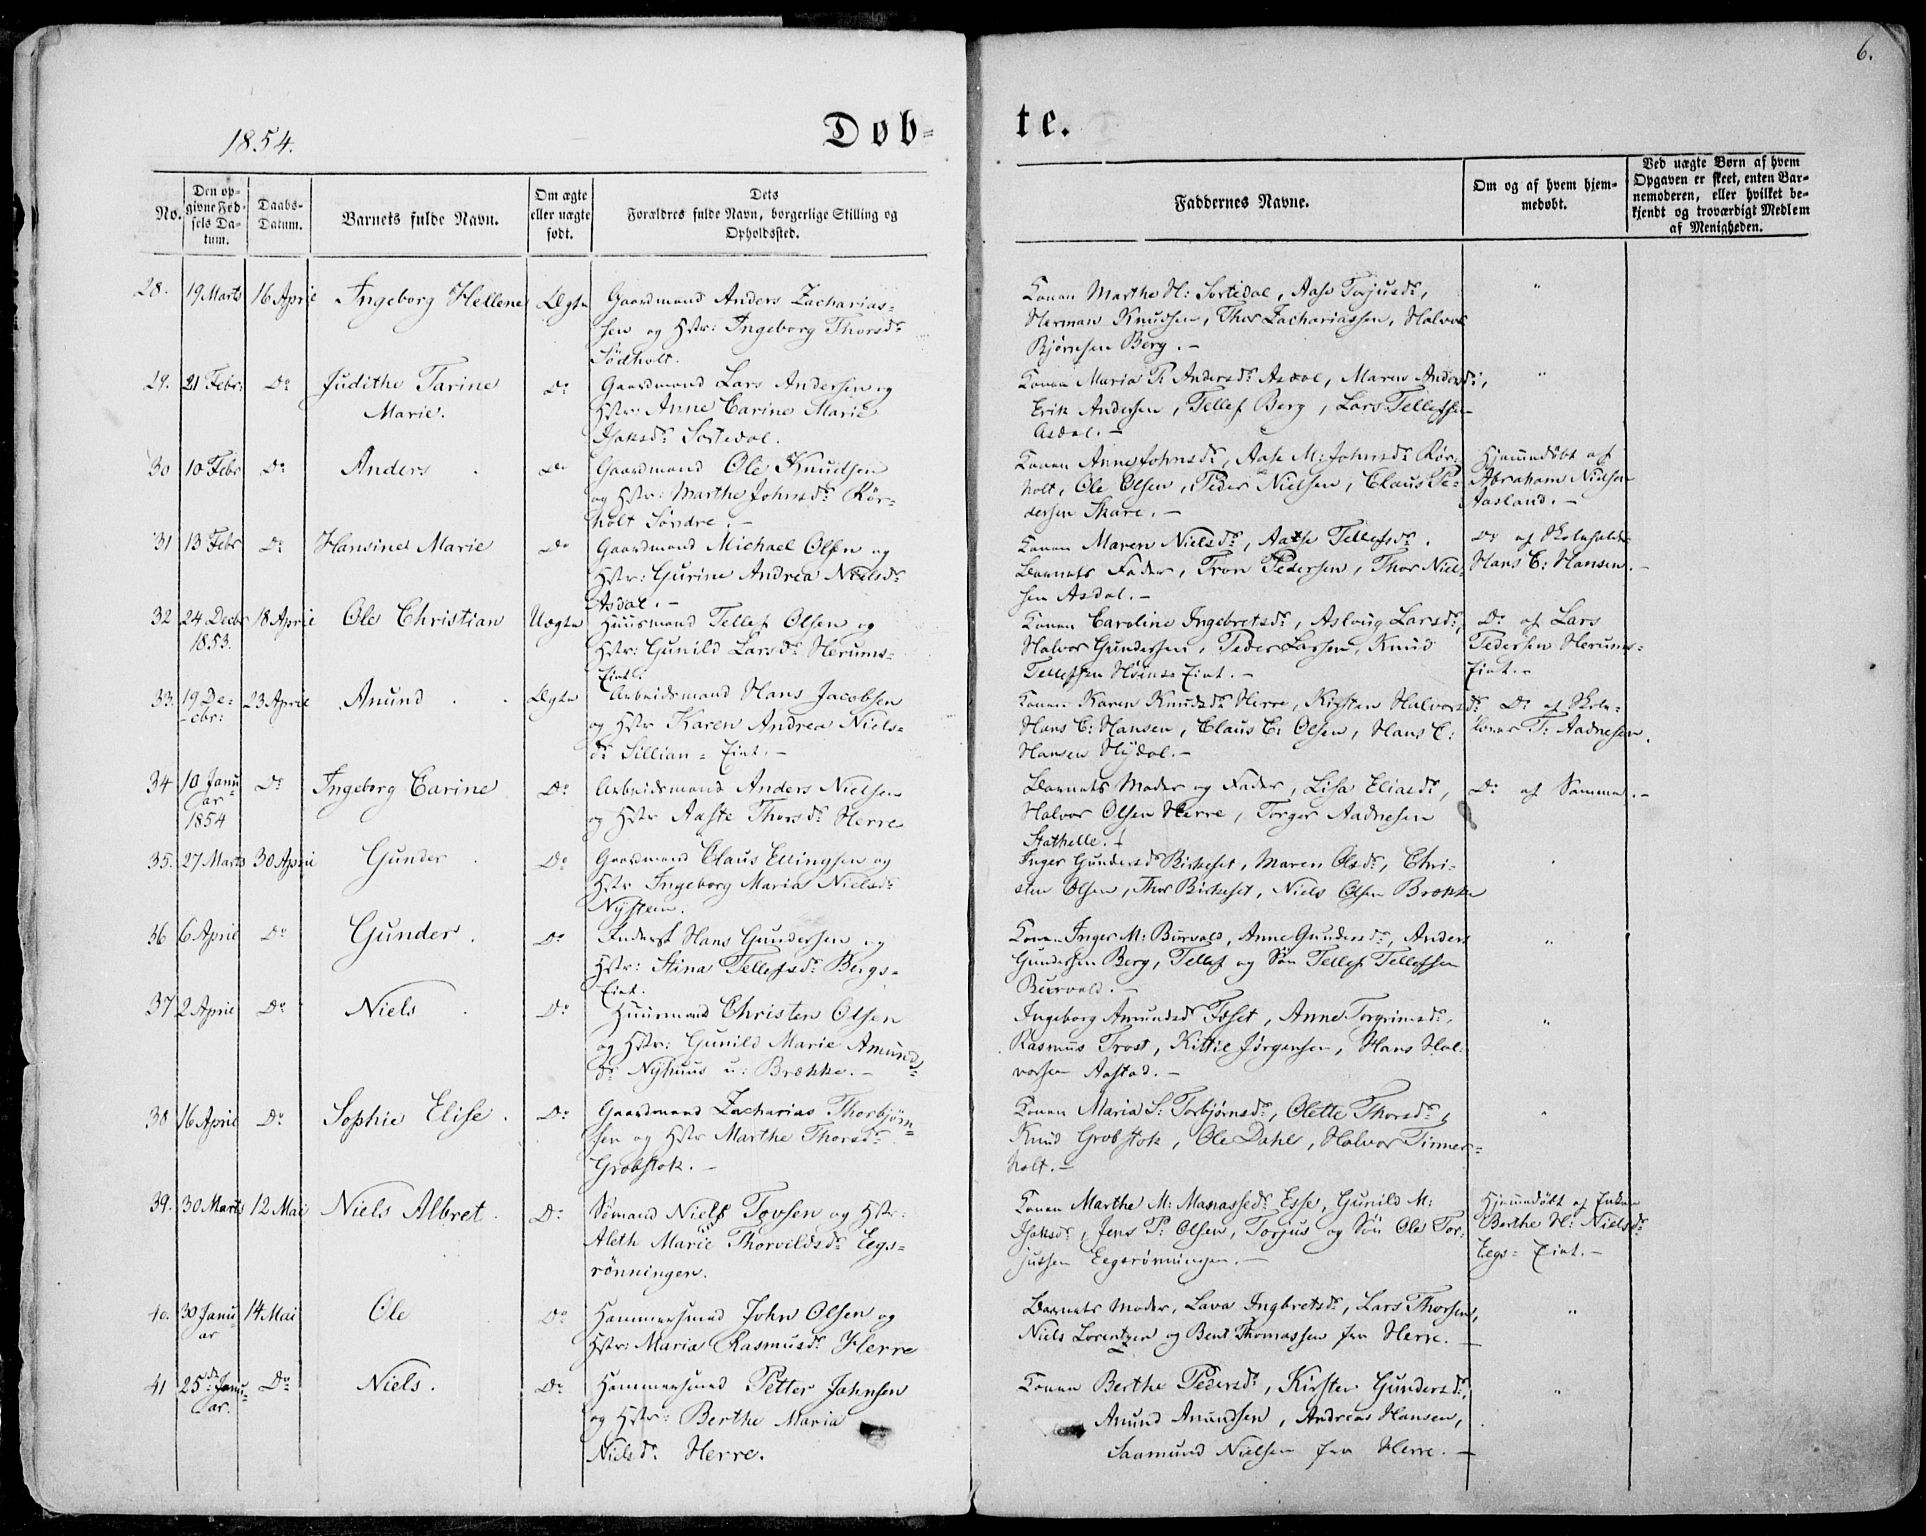 6.
1854.
Døb-
te.
No.
Den op-
givne Fød-
sels Da-
tum.
Daabs-
Datum.
Barnets fulde Navn.
Om ægte
eller uægte
født.
Dets
Forældres fulde Navn, borgerlige Stilling og
Opholdssted.
Faddernes Navne.
Om og af hvem hjem-
medøbt.
Ved uægte Børn af hvem
Opgaven er skeet, enten Bar-
nemoderen, eller hvilket be-
kjendt og troværdigt Medlem
af Menigheden.
28. 19 Marts 16 April Ingeborg Hellene Ægte
Gaardmand Anders Zacharias-
sen og Hstr: Ingeborg Thorsdr
Södholt.
Konen Marthe H: Sortedal, Aase Torjusdr,
Herman Knudsen, Thor Zachariassen, Halvor
Bjørnsen Berg. –
"
29. 21 Febr: Do Judithe Tarine
Marie.
Do
Gaardmand Lars Andersen og
Hstr: Anne Carine Marie
Isaksdr Sortedal.
Konen Maria P. Andersdr Asdal, Maren Andersdr,
Erik Andersen, Tellef Berg, Lars Tellefsen
Asdal. –
"
30 10 Febr Do Anders . Do
Gaardmand Ole Knudsen
og Hstr: Marthe Johnsdr Rør-
holt Søndre. –
Konen Anne Johnsdr, Aase M: Johnsdr Rør-
holt, Ole Olsen, Peder Nielsen, Claus Pe-
dersen Skare. –
Hjemmedøbt af
Abraham Nielsen
Aasland. –
31 13 Febr Do Hansine Marie Do
Gaardmand Michael Olsen og
Hstr: Gurine Andrea Nielsdr
Asdal. –
Konen Maren Nielsdr, Aase Tellefsdr.
Barnets Fader, Tron Pedersen, Thor Niel-
sen Asdal. –
Do af Skoleholder
Hans C: Hansen. –
32 24 Decbr
1853. 18 April Ole Christian Uægte
Huusmand Tellef Olsen og
Hstr: Gunild Larsdr Herums-
Eiet.
Konen Caroline Ingebretsdr, Aslaug Larsdr,
Halvor Gundersen, Peder Larsen, Knud
Tellefsen Höines Eiet. –
Do af Lars
Pedersen Herums-
Eiet. –
33. 19 De-
cbr: 23 April Anund . . Ægte
Arbeidsmand Hans Jacobsen
og Hstr Karen Andrea Niels-
dr Sillian-Eiet. –
Konen Karen Knudsdr Herre, Kirsten Halvorsdr
Hans C: Hansen, Claus C: Olsen, Hans C:
Hansen Nydal. –
Do af Skole-
lærer T: Aadnesen.
34 10 Janu
ar
1854 Do Ingeborg Carine Do
Arbeidsmand Anders Nielsen
og Hstr Aaste Thorsdr Herre
Barnets Moder og Fader, Lisa Eliasdr,
Halvor Olsen Herre, Torger Aadnesen
Stathelle. –
Do af Samme. –
35. 27 Marts 30 April Gunder . Do
Gaardmand Claus Ellingsen og
Hstr Ingeborg Maria Nielsdr
Nysteen.
Inger Gundersdr Birkeset, Maren Olsdr, Chri-
sten Olsen, Thor Birkeset, Niels Olsen Brække
"
36 6 April Do Gunder . Do
Inderst Hans Gundersen og
Hstr: Stina Tellefsdr Bergs-
Eiet.
Konen Inger M: Burvald, Anne Gundersdr, Anders
Gundersen Berg, Tellef og Søn Tellef Tellefsen
Burvald. –
"
37 2 April Do Niels . Do
Huusmand Christen Olsen
og Hstr: Gunild Marie Amunds-
dr Nyhuus u: Brække. –
Ingeborg Amundsdr Foset, Anne Torgrimsdr,
Rasmus Trost, Kittil Jørgensen, Hans Hal-
vorsen Aastad. –
"
38 16 April Do Sophie Elise . Do
Gaardmand Zacharias Thorbjørn-
sen og Hstr Marthe Thorsdr
Grobstok. –
Konen Maria S: Torbjørnsdr, Olette Thorsdr,
Knud Grobstok, Ole Dahl, Halvor Tinner-
holt. –
"
39. 30 Marts 12 Mai Niels Albret . Do
Sømand Niels Tovsen og Hstr:
Aleth Marie Thorvildsdr Eegs-
rönningen.
Konen Marthe M: Manassedr Esse, Gunild M:
Isaksdr, Jens P: Olsen, Torjus og Sön Ole Tor-
jussen Eegsrønningen. –
Hjemmedøbt af Enken
Berthe H: Nielsdr
Eegs-Eiet. –
40. 30 Janu
ar 14 Mai Ole Do
Hammersmed John Olsen og
Hstr: Maria Rasmusdr Herre
Barnets Moder, Lava Ingbretsdr, Lars Thorsen,
Niels Lorentzen og Bent Thomassen fra Herre. –
"
41 25de Janu-
ar. Do Niels . Do
Hammersmed Petter Johnsen
og Hstr: Berthe Maria
Nielsdr Herre.
Konen Berthe Pedersdr, Kirsten Gundersdr,
Anund Anundsen, Andreas Hansen,
Saamund Nielsen fra Herre. –
"